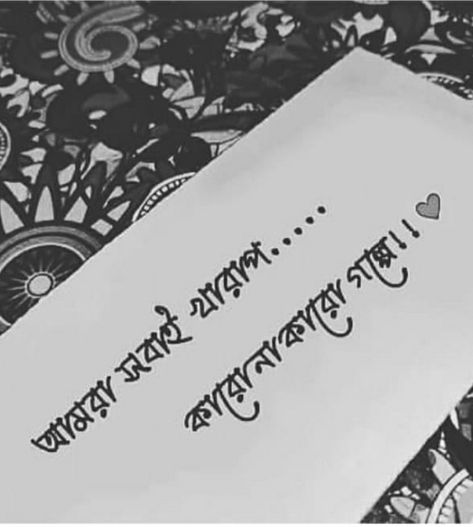 আমরা সবাই খারাপ.....
কারো না কারো গল্পে।।